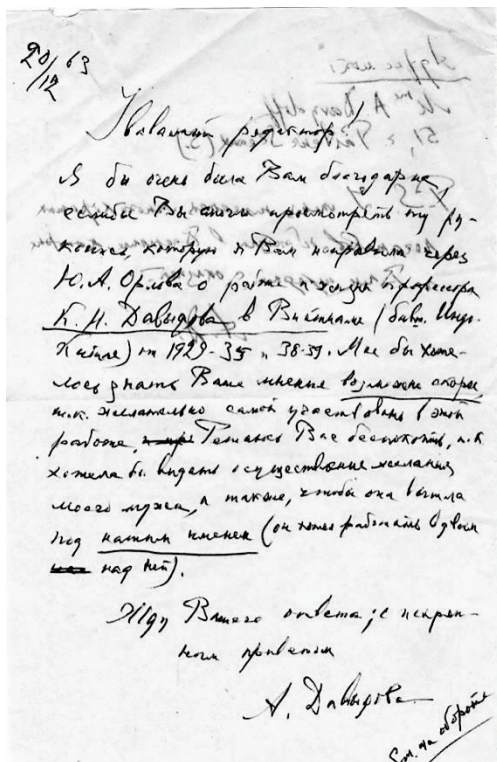 20/12 63
Уважаемый редактор!
Я бы очень была Вам благодарна,
если бы Вы смогли просмотреть ту ру-
копись, которую я Вам направила через
Ю.А. Орлова о работе и жизни профессора
К.Н. Давыдова в Вьетнаме (бывш. Индо-
Китае) от 1929-35 и 38-39. Мне бы хоте-
лось знать Ваше мнение возможно скорее
т.к. желательно самой участвовать в этой
работе. Решаюсь Вас беспокоить, т.к.
хотела бы видеть осуществление желания
моего мужа, а также, чтобы она вышла
под нашим именем (он хотел работать вдвоем
над ней).
Жду Вашего ответа; с искрен-
ним приветом
А. Давыдова
См. на обороте